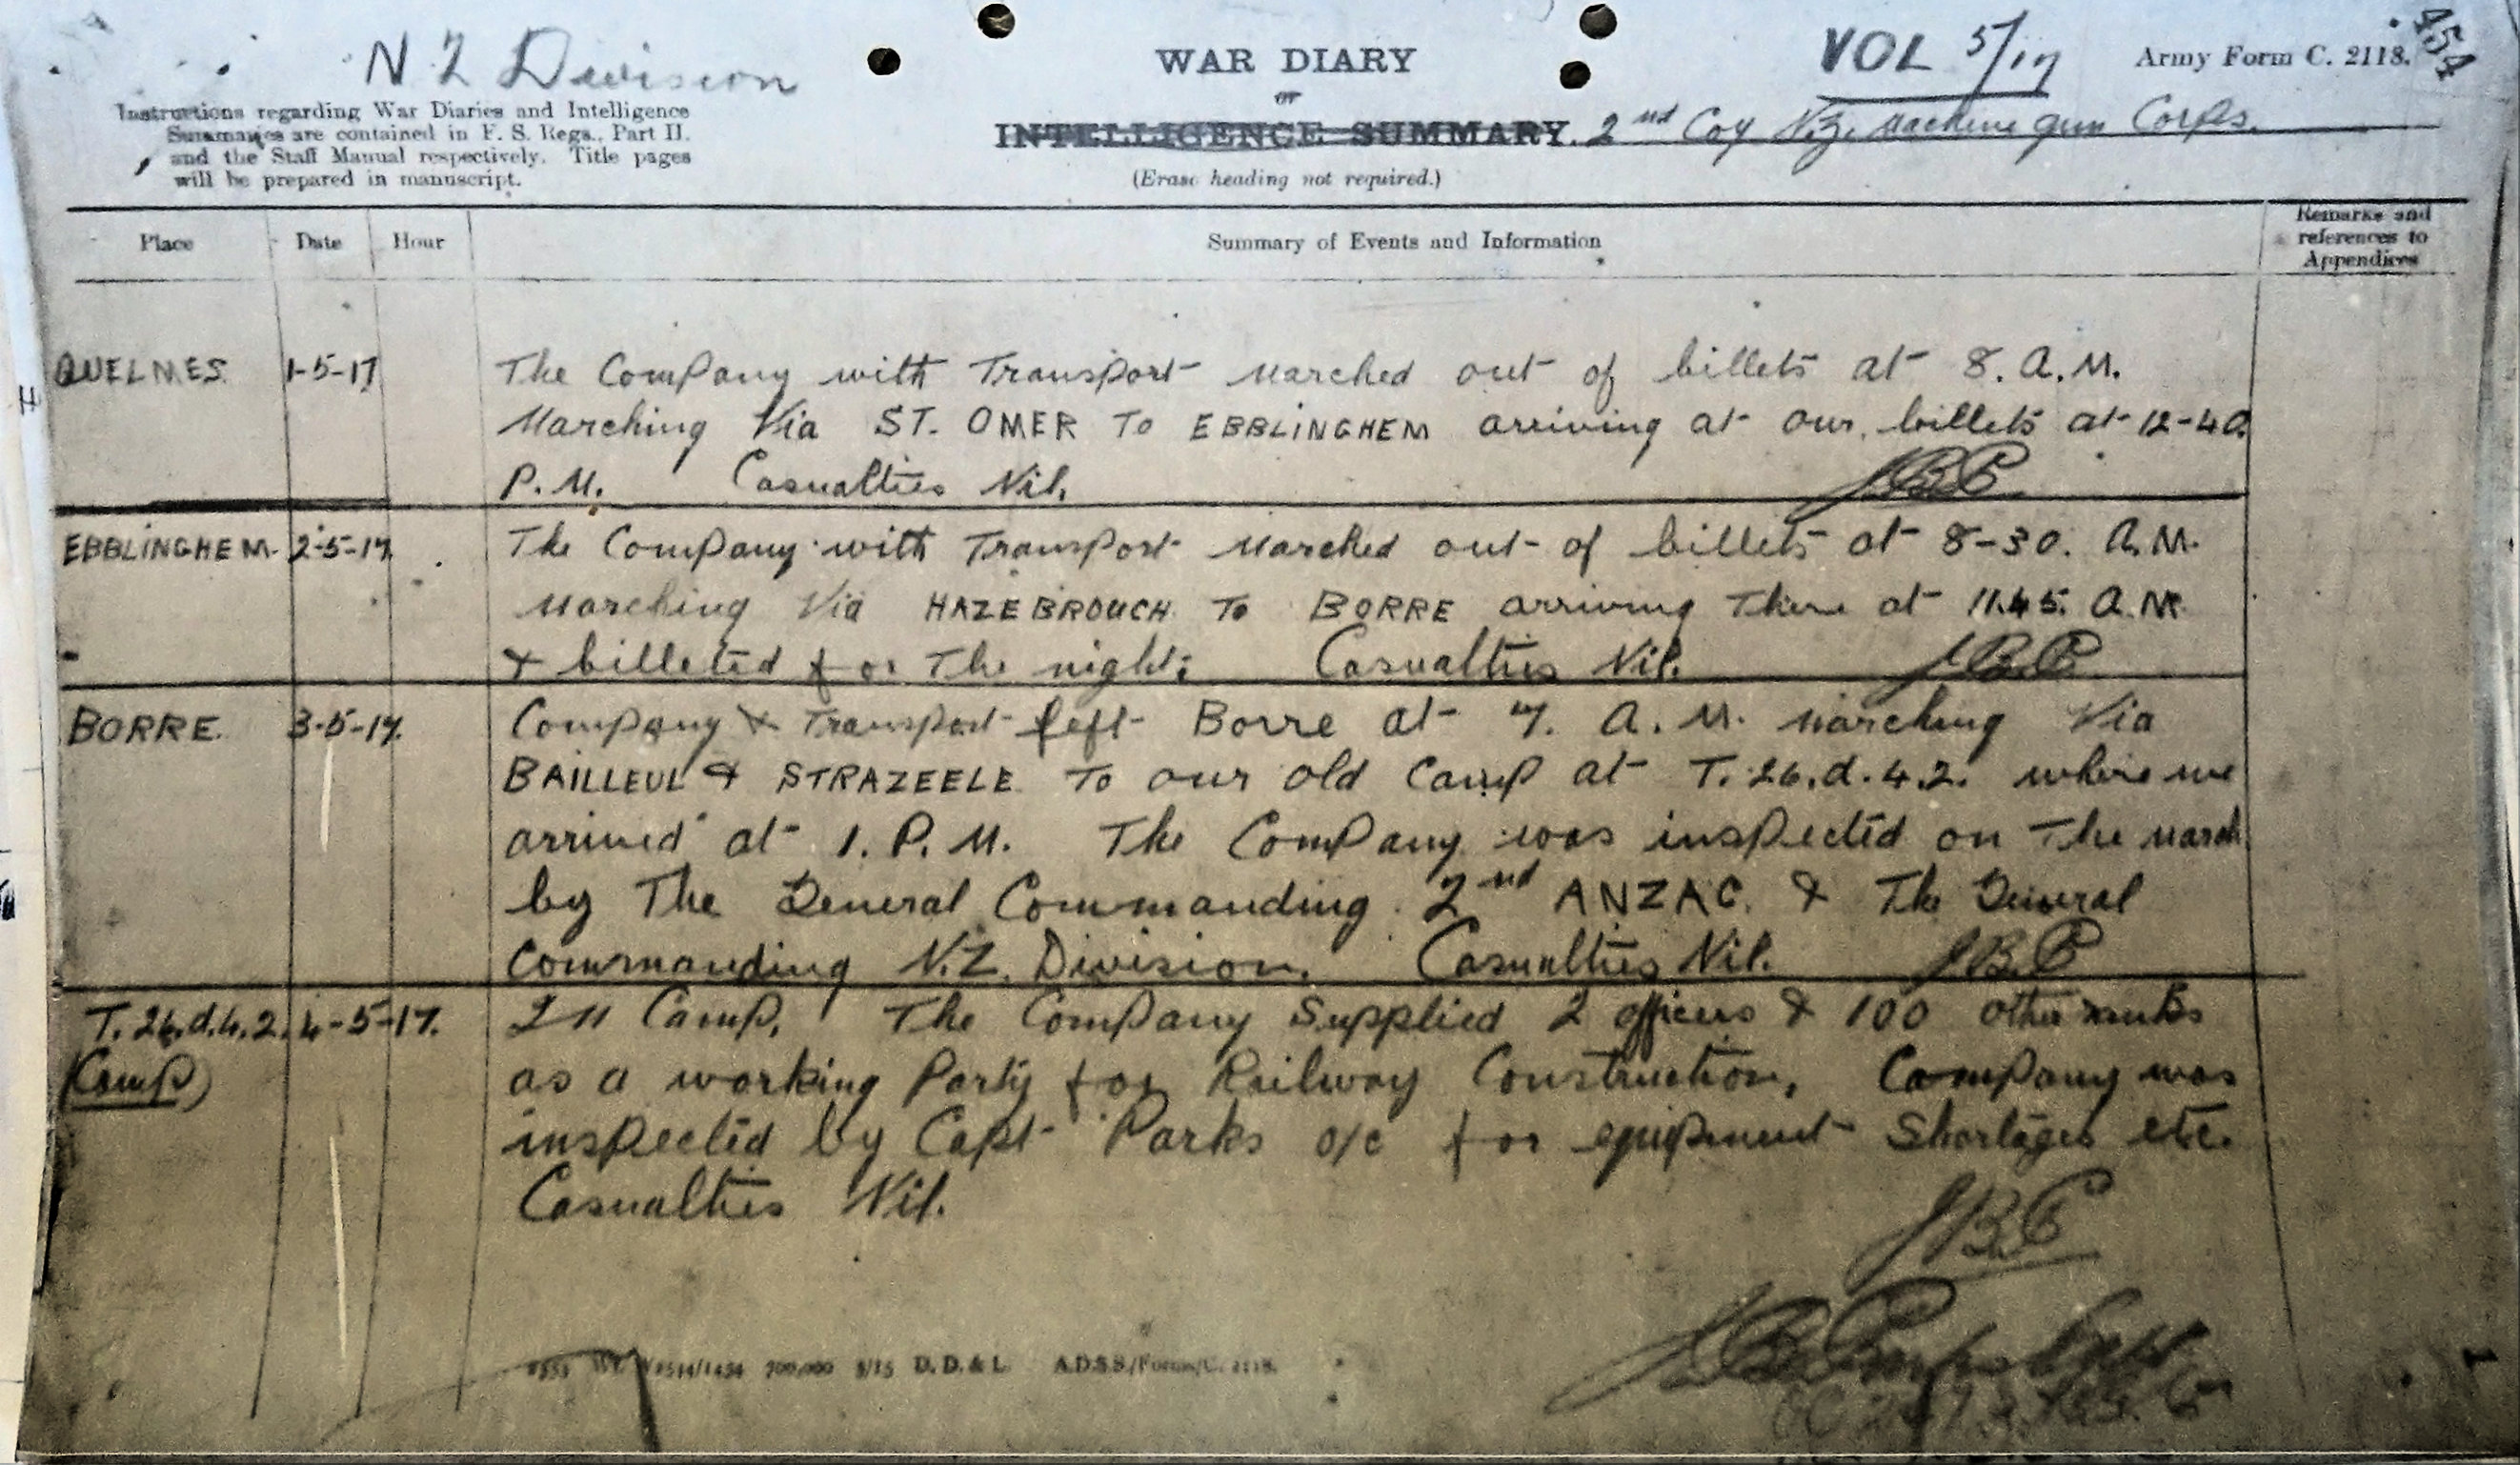 N Z Division
WAR DIARY
or
INTELLIGENCE SUMMARY.
(Erase heading not required.)
VOL 5/17
Army Form C. 2118.
454
2nd Coy N.Z. Machine gun Corps.
Instructions regarding War Diaries and Intelligence
Summaries are contained in F. S. Regs., Part II.
and the Staff Manual respectively. Title pages
will be prepared in manuscript.
Place Date Hour Summary of Events and Information Remarks and
references to
Appendices
QUELMES. 1-5-17 The Company with Transport marched out of billets at 8. A.M.
Marching Via ST. OMER To EBBLINGHEM arriving at our billets at 12-40
P.M. Casualties Nil. JBP
EBBLINGHEM. 2-5-17. The Company with Transport marched out of billets at 8-30. A.M.
marching Via HAZEBROUCH To BORRE arriving There at 11.45. A.M.
& billeted for The night. Casualties Nil. JBP
BORRE. 3-5-17. Company & Transport left Borre at 7. A.M. marching Via
BAILLEUL & STRAZEELE To our old Camp at T.26.d.4.2. where we
arrived at 1. P.M. The Company was inspected on The march
by The General Commanding 2nd ANZAC. & The General
Commanding N.Z. Division. Casualties Nil. JBP
T.26.d.4.2. 4-5-17. In Camp. The Company Supplied 2 officers & 100 other ranks
(Camp) as a working Party for Railway Construction. Company was
inspected by Capt Parks o/c for equipment Shortages etc.
Casualties Nil.
JBP
JB Parks Capt
OC 2
D. D. & L. A.D.S.S./Forms/C. 2118.